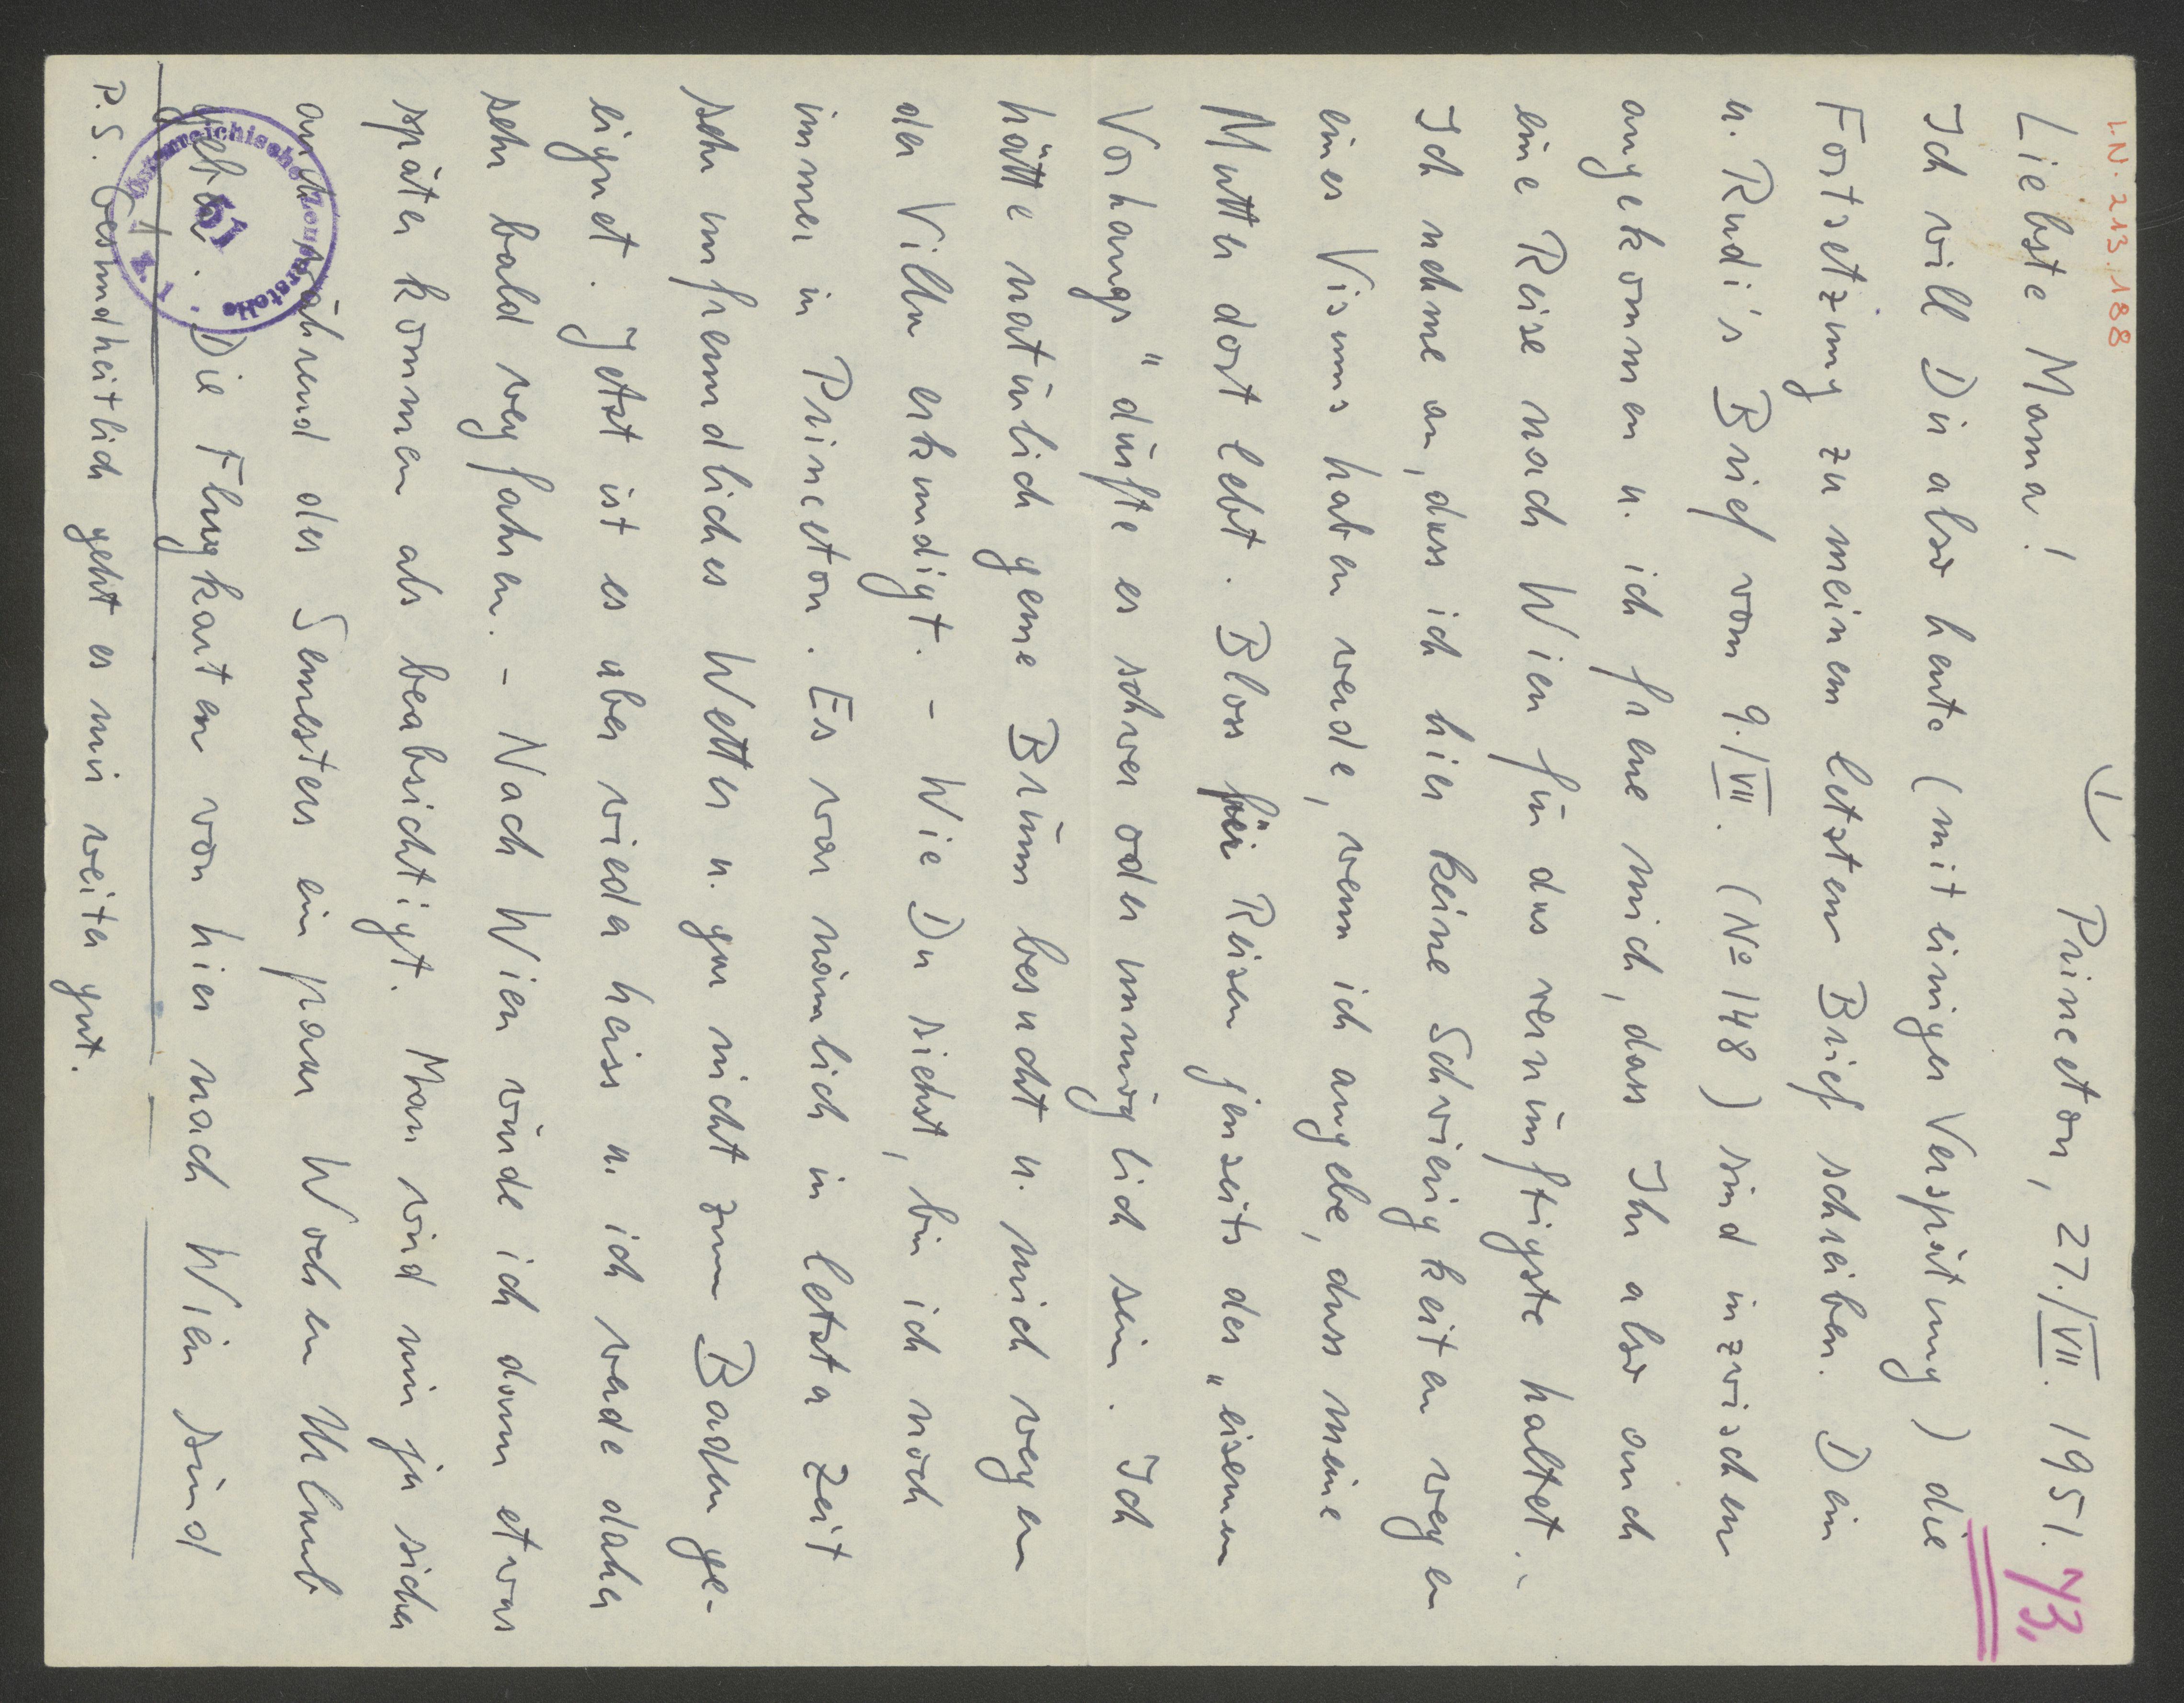 I.N. 213.188
1
Princeton, 27./VII. 1951.
73.
Liebste Mama!
Ich will Dir also heute (mit einiger Verspätung) die
Fortsetzung zu meinem letzten Brief schreiben. Dein
u. Rudi's Brief vom 9./VII. (No 148) sind inzwischen
angekommen u. ich freue mich, dass Ihr also auch
eine Reise nach Wien für das vernünftigste haltet.
Ich nehme an, dass ich hier keine Schwierigkeiten wegen
eines Visums haben werde, wenn ich angebe, dass meine
Mutter dort lebt. Bloss für Reisen jenseits des „eisernen
Vorhangs" dürfte es schwer oder unmöglich sein. Ich
hätte natürlich gerne Brünn besucht u. mich wegen
der Villa erkundigt. - Wie Du siehst, bin ich noch
immer in Princeton. Es war nämlich in letzter Zeit
sehr unfreundliches Wetter u. gar nicht zum Baden ge-
eignet. Jetzt ist es aber wieder heiss u. ich werde daher
sehr bald wegfahren. - Nach Wien würde ich dann etwas
später kommen als beabsichtigt. Man wird mir ja sicher
auch während des Semesters ein paar Wochen Urlaub
geben. Die Flugkarten von hier nach Wien sind
P.S. Gesundheitlich geht es mir weiter gut.
Österreichische Zensurstelle
51